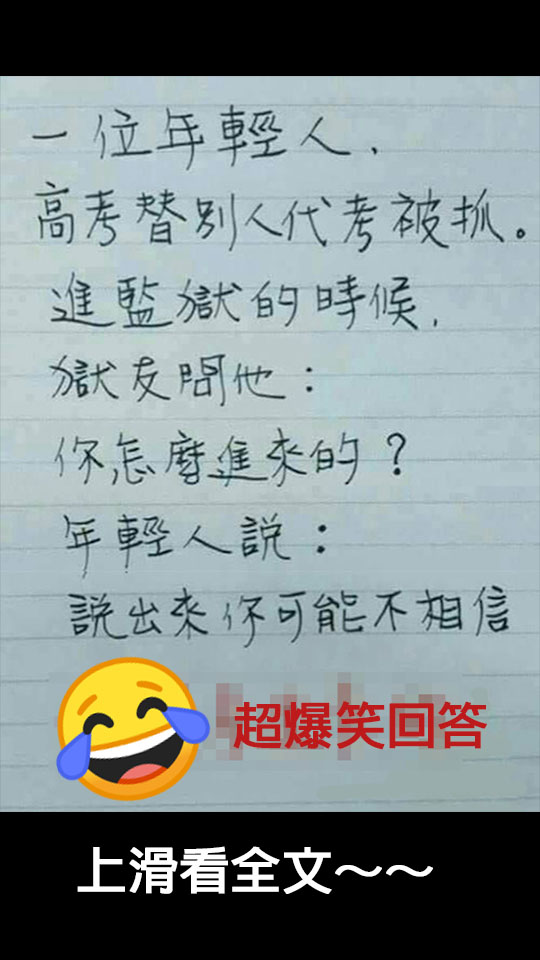 一位年輕人，
高考替別人代考被抓。
進監獄的時候，
獄友問他：
你怎麼進來的？
年輕人說：
說出來你可能不相信
超爆笑回答
上滑看全文～～